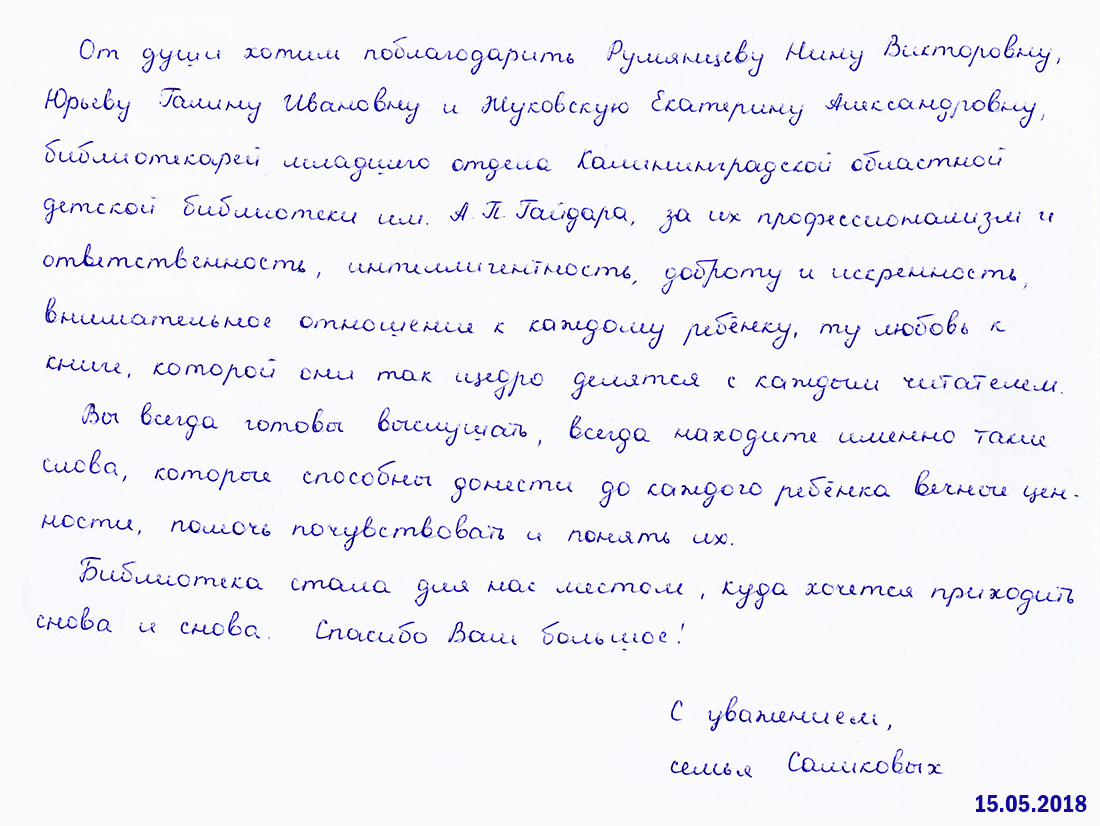 От души хотим поблагодарить Румянцеву Нину Викторовну,
Юрьеву Галину Ивановну и Жуковскую Екатерину Александровну,
библиотекарей младшего отдела Калининградской областной
детской библиотеки им. А.П. Гайдара, за их профессионализм и
ответственность, интеллигентность, доброту и искренность,
внимательное отношение к каждому ребёнку, ту любовь к
книге, которой они так щедро делятся с каждым читателем.
Вы всегда готовы выслушать, всегда находите именно такие
слова, которые способны донести до каждого ребёнка вечные цен-
ности, помочь почувствовать и понять их.
Библиотека стала для нас местом, куда хочется приходить
снова и снова. Спасибо Вам большое!
С уважением,
семья Саликовых
15.05.2018